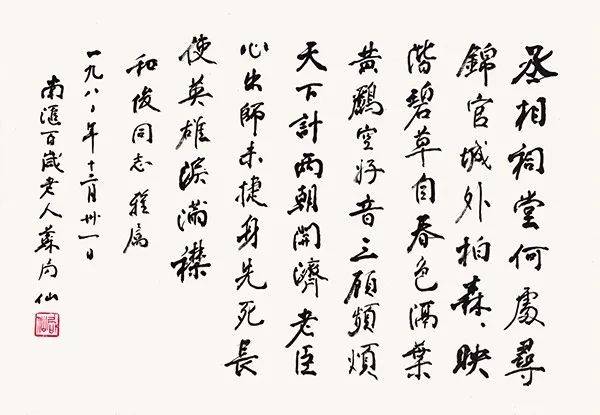 丞相祠堂何處尋
錦官城外柏森、映
階碧草自春色隔葉
黃鸝空好音三顧頻煩
天下計兩朝開濟老臣
心出師未捷身先死長
使英雄淚滿襟
和俊同志雅屬
一九八〇年十二月卅一日
南匯百歲老人蘇局仙